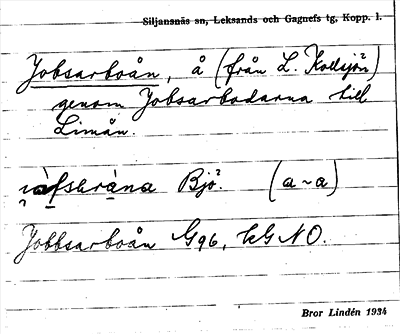 Siljansnäs sn, Leksands och Gagnefs tg, Kopp. l.
Jobsarboån, å (från L. Kollsjön)
genom Jobsarbodarna till
Limån.
Bjö. (a~a)
Jobbsarboån G96, kGNO.
Bror Lindén 1934